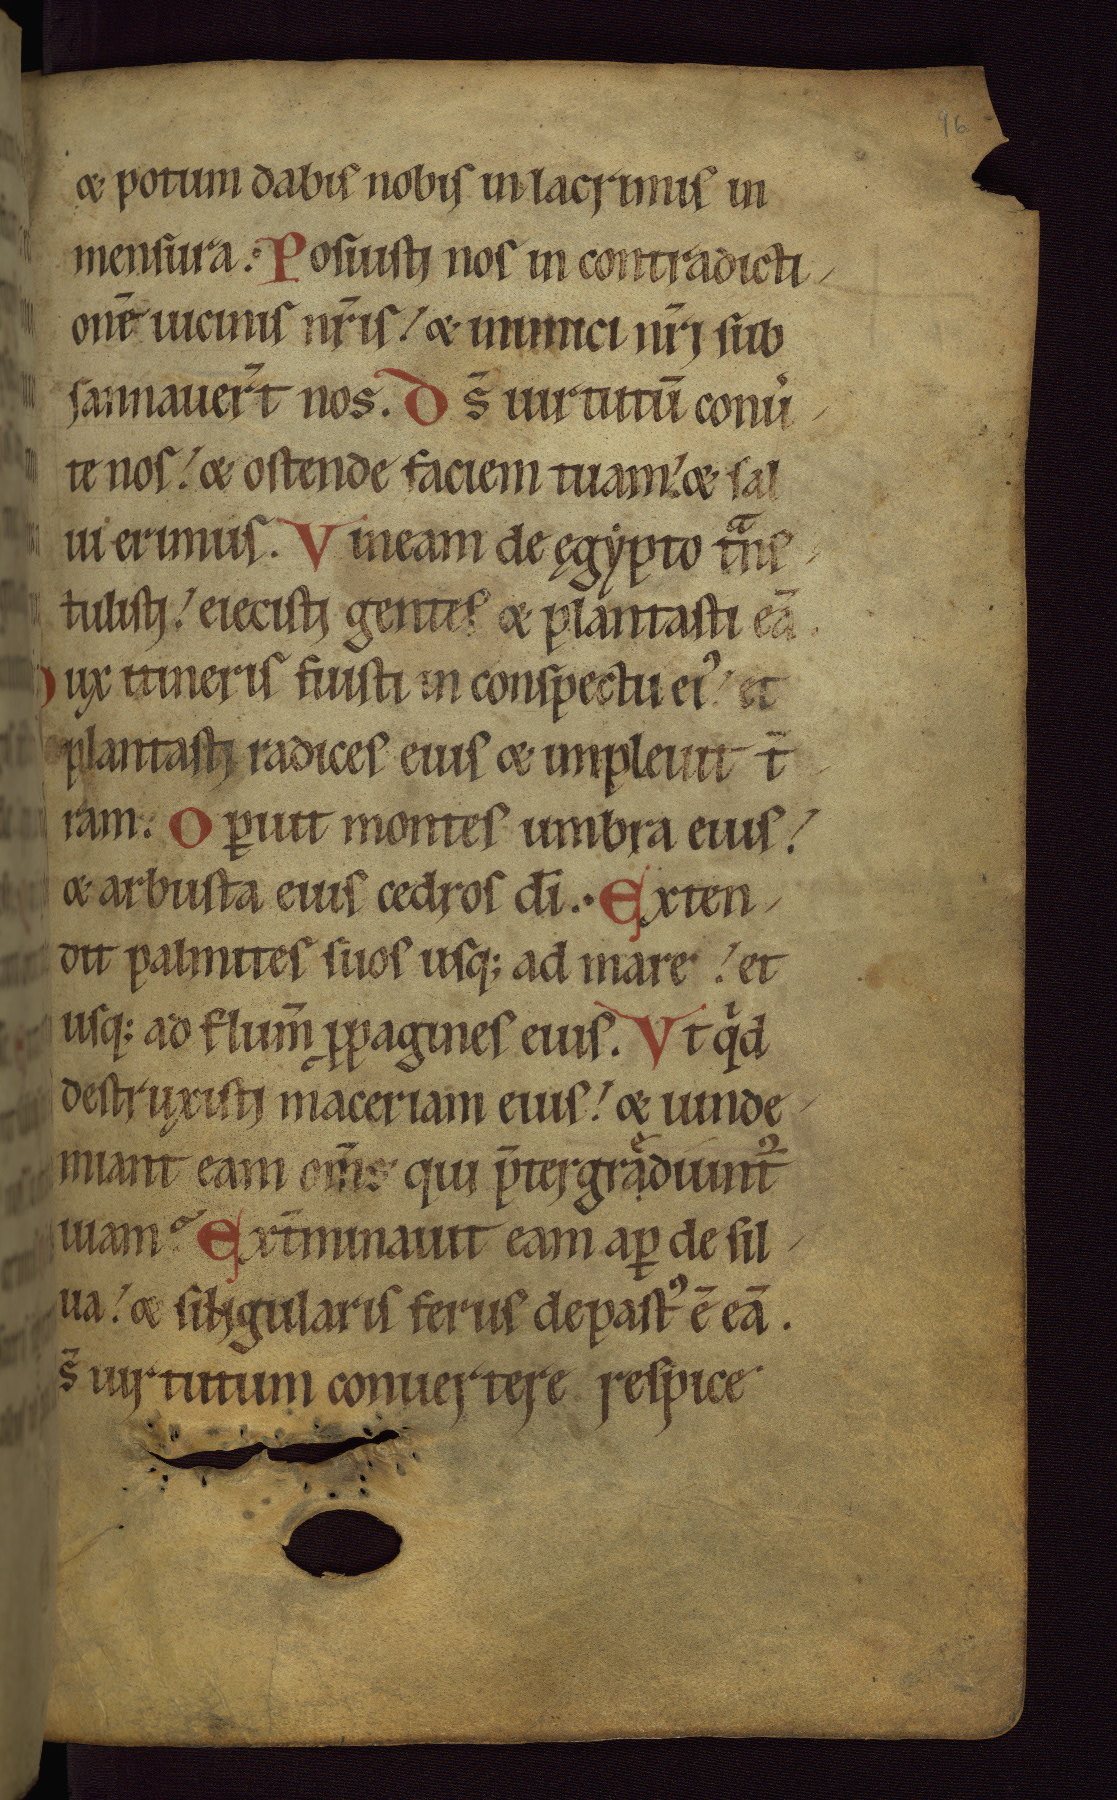 96
& potum dabis nobis in lacrimis in
mensura. Posuisti nos in contradicti-
onē uicinis nr̄is! & inimici nr̄i sub
sannauer̄t nos. D s̄ uirtutū conu̓-
te nos! & ostende faciem tuam! & sal
ui erimus. Vineam de ęgypto tͣns-
tulisti! eiecisti gentes & plantasti eā.
Dux itineris fuisti in conspectu ei᾽! et
plantasti radices eius & impleuit t̄-
ram. Oꝑuit montes umbra eius!
& arbusta eius cedros dī. Exten-
dit palmites suos usq; ad mare! et
usq; ad flum̄ ꝓpagines eius. Vt qͥd
destruxisti maceriam eius! & uinde-
miant eam om̄s qui p̄tergrạͤdiunt᾽
uiam. Ext̄minauit eam aꝑ de sil-
ua! & singularis ferus depast᾽ ē eā.
s̄ uirtutum conuertere respice